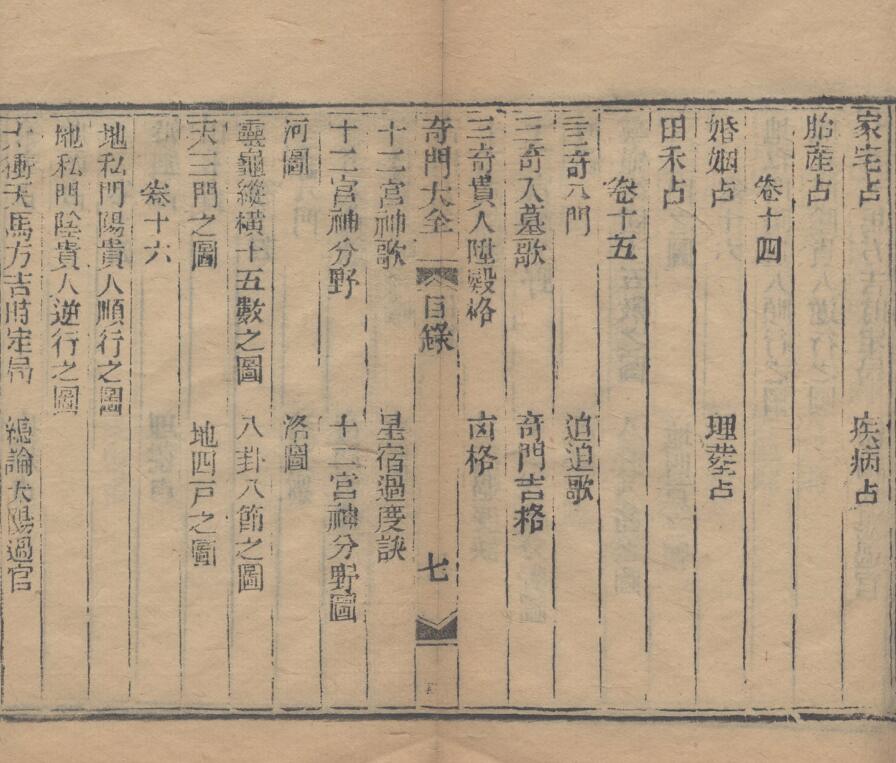 家宅占　疾病占
胎產占
卷十四
婚姻占　理塟占
田禾占
卷十五
三奇入門　迫迫歌
三奇入墓歌　奇門吉格
三奇貴人陞殿格　凶格
奇門大全　目錄　七
十二宮神歌　星宿過度訣
十二宮神分野　十二宮神分野圖
河圖　洛圖
靈龜縱橫十五數之圖　八卦八節之圖
天三門之圖　地四戸之圖
卷十六
地私門陽貴人順行之圖
地私門陰貴人逆行之圖
太衝天馬方吉時定局　總論太陽過官